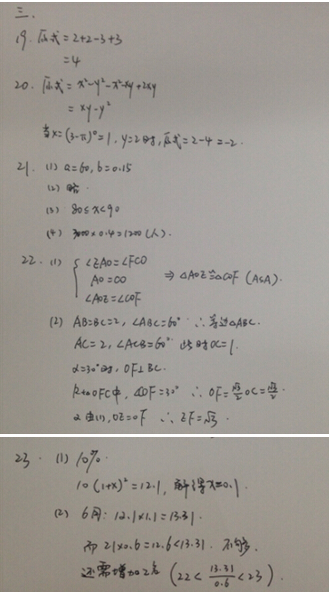 三.
19. 原式 = 2+2-3+3
= 4
20. 原式 = x²-y²-x²-xy+2xy
= xy-y²
当x=(3-π)⁰=1, y=2时, 原式=2-4=-2.
21. (1) a=60, b=0.15
(2) 略.
(3) 80≤x<90
(4) 3000×0.4=1200(人).
22. (1) { ∠EAO=∠FCO
AO=CO ⇒ △AOE≌△COF (ASA).
∠AOE=∠COF
(2) AB=BC=2, ∠ABC=60° ∴等边△ABC.
AC=2, ∠ACB=60° 此时OC=1.
α=30°时, OF⊥BC.
Rt△OFC中, ∠COF=30° ∴ OF=√3/2 OC=√3/2.
又由(1), OE=OF ∴ EF=√3.
23. (1) 10%.
10(1+x)²=12.1, 解得x=0.1.
(2) 6月: 12.1×1.1=13.31.
而 21×0.6=12.6<13.31. 不够.
还需增加2名 (22<13.31/0.6<23).